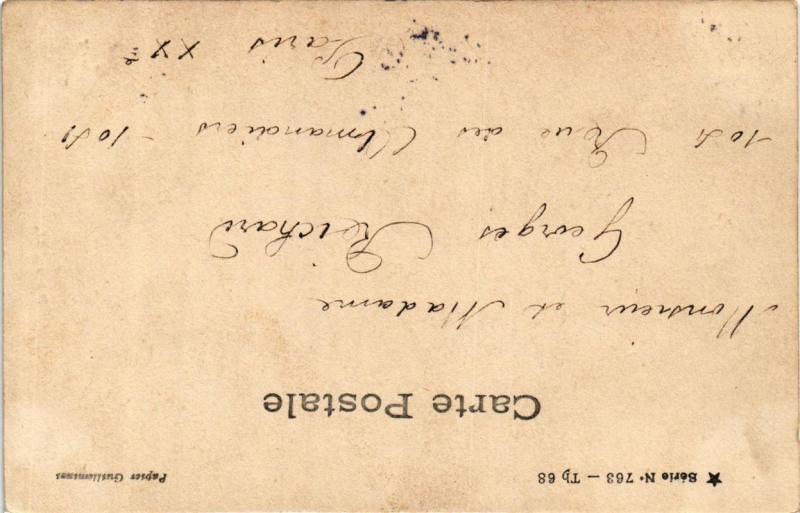 ★ Série N° 763 — Tp 68 Papier Guilleminot
Carte Postale
Monsieur et Madame
Georges Reichard
105 Rue des Amandiers - 105
Paris XXe